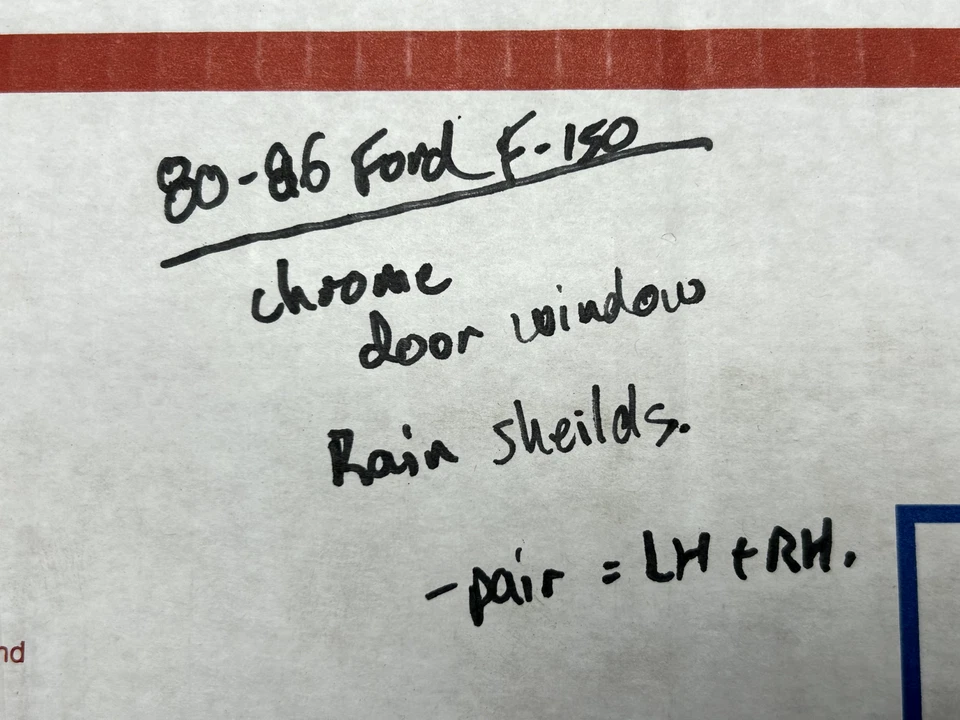 80-86 Ford F-150
chrome
door window
Rain sheilds.
-pair = LH + RH.
nd